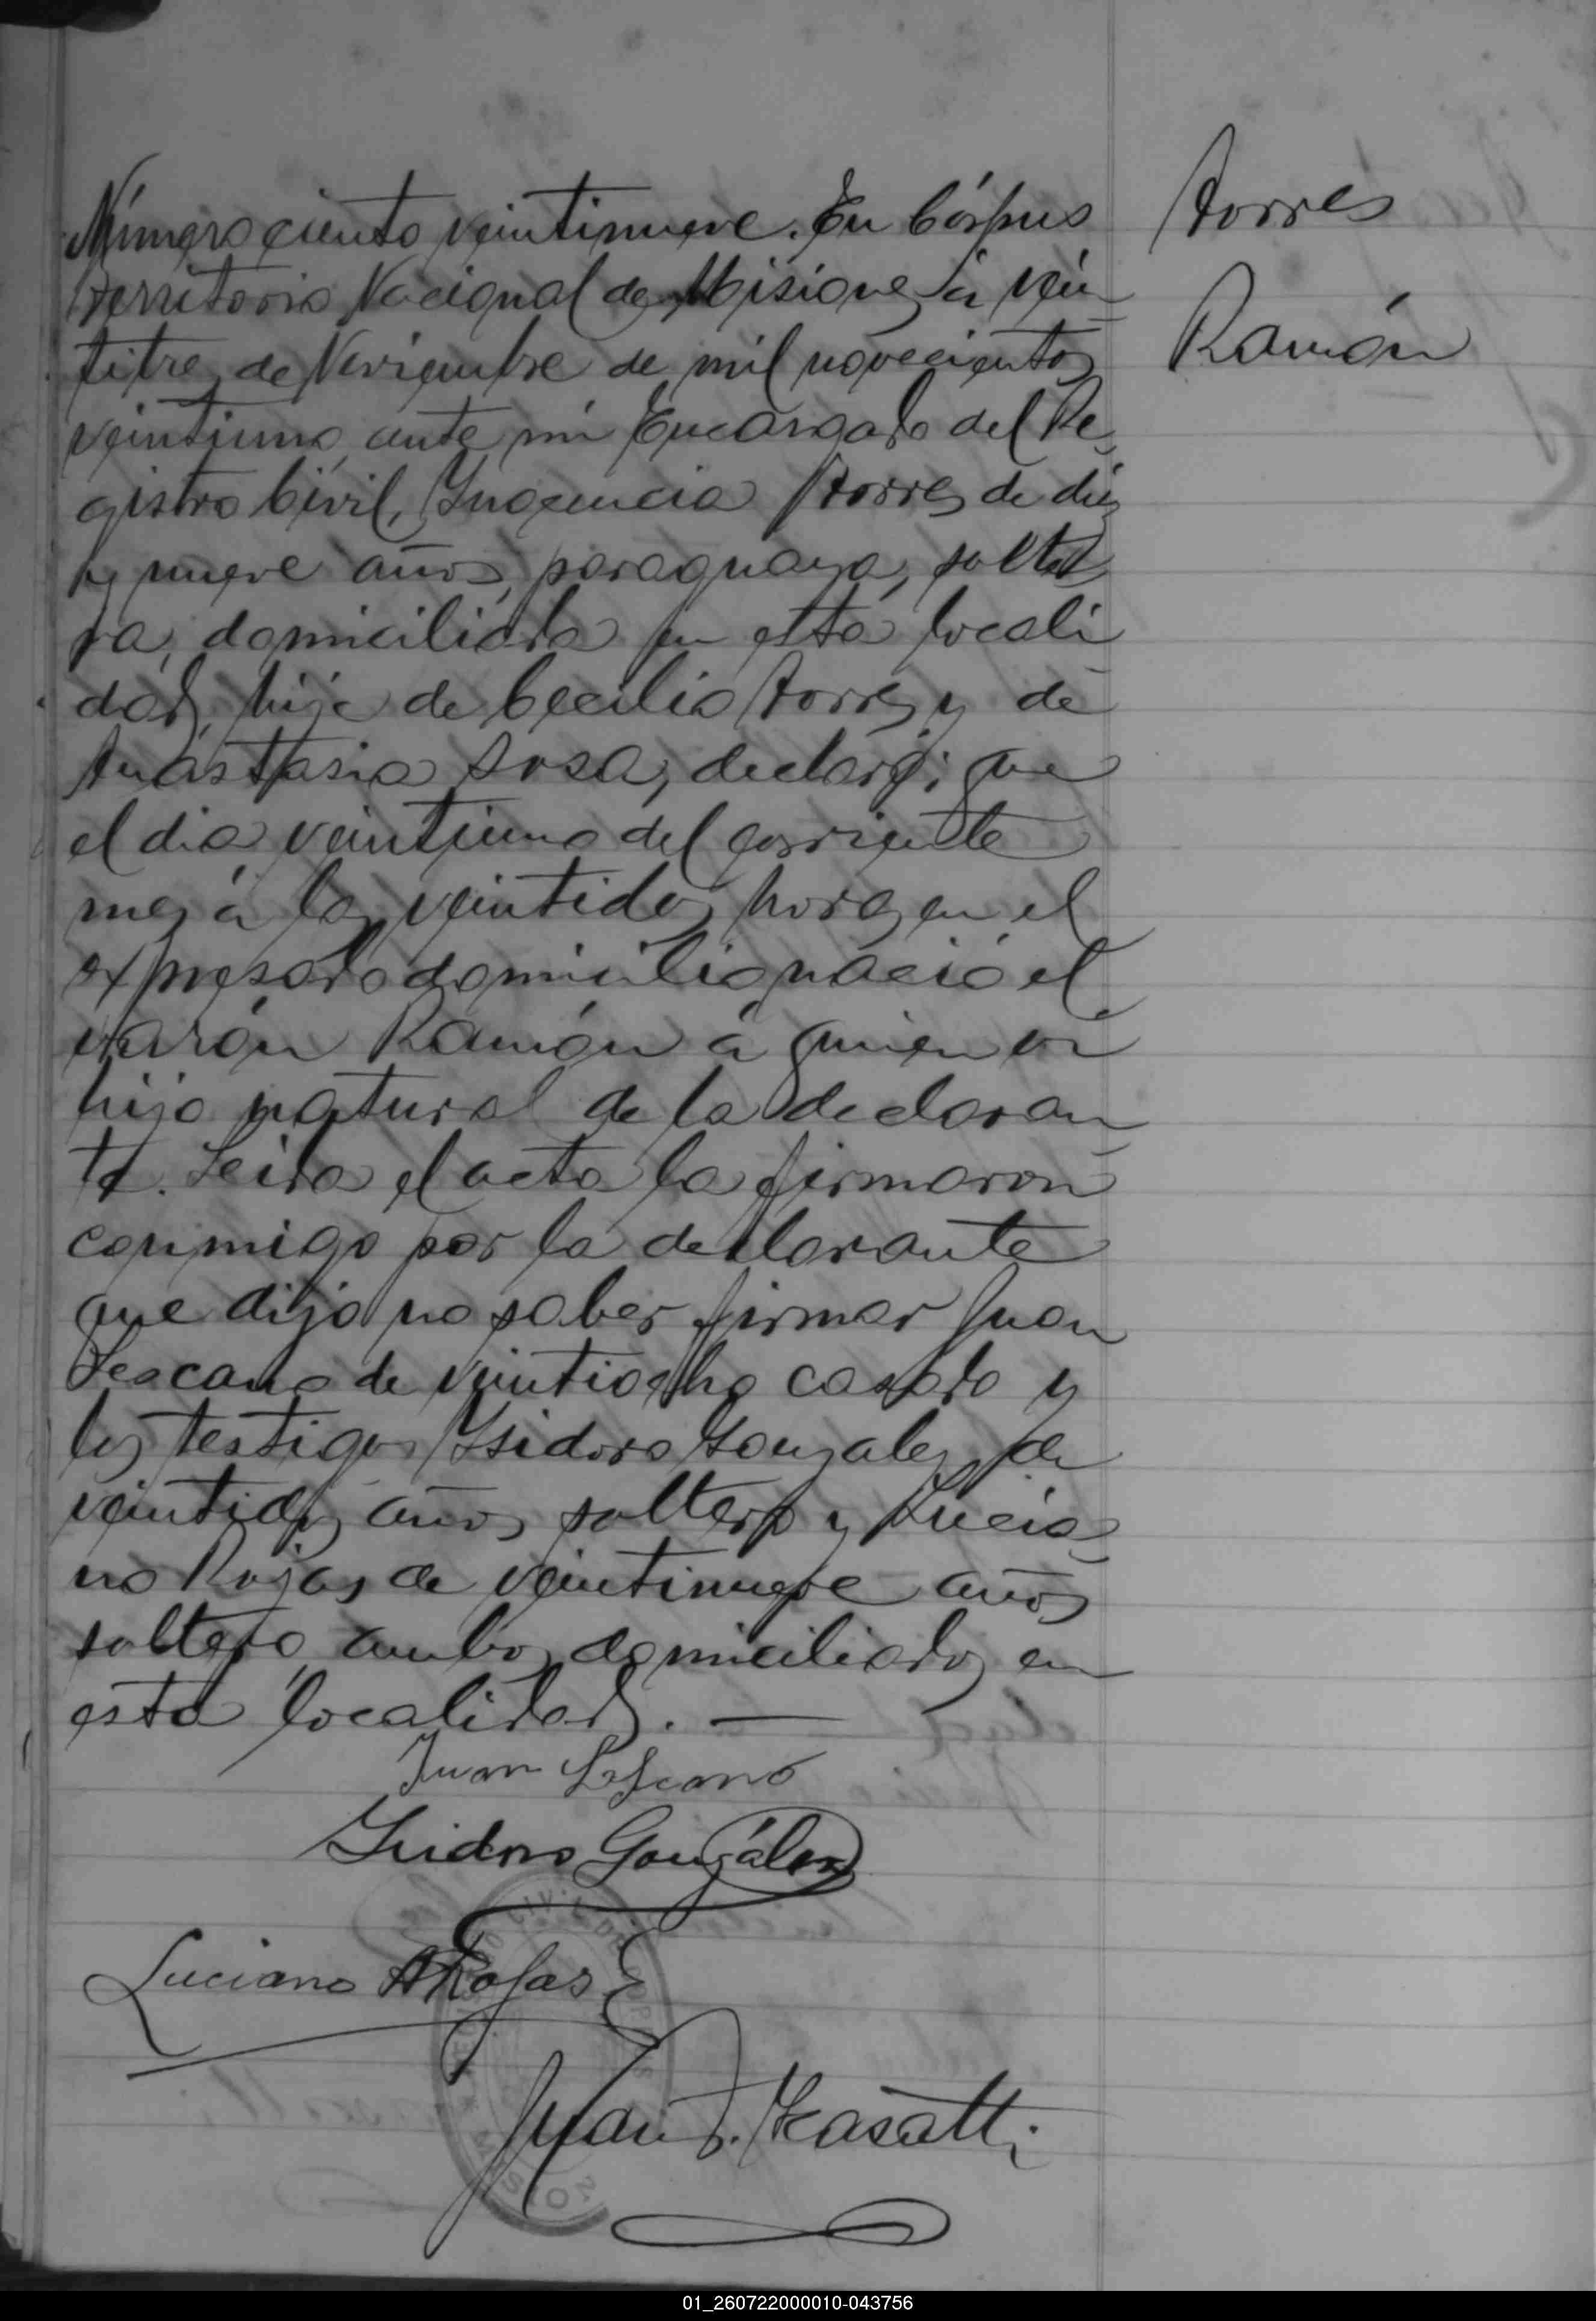 Torres
Ramón
Número ciento veintinueve. En Córpus
Territorio Nacional de Misiones á vein-
titres de Noviembre de mil novecientos
veintiuno, ante mí Encargado del Re-
gistro Civil, Inocencia Torres de diez
y nueve años, paraguaya, solte-
ra, domiciliada en esta locali-
dad, hija de Cecilio Torres y de
Anastasia Sosa, declaró; que
el dia veintiuno del corriente
mes á las veintidos horas en el
expresado domicilio nació el
varón Ramón á quien vi
hijo natural de la declaran-
te. Leida el acta la firmaron
conmigo por la declarante
que dijo no saber firmar Juan
Lescano de veintiocho casado y
los testigos Isidoro Gonzales de
veintidos años, soltero y Lucia-
no Rojas de veintinueve años
soltero ambos domiciliados en
esta localidad. —
Juan Lescano
Isidoro González
Luciano Rojas
Juan Casatti
01_260722000010-043756